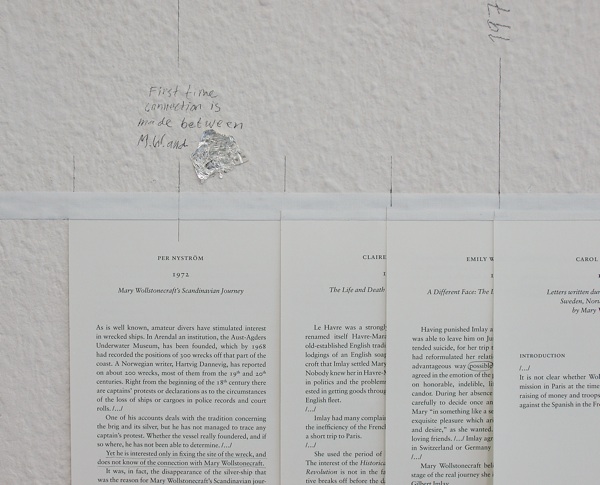 197
First time
connection is
made between
M.W. and
PER NYSTRÖM
1972
Mary Wollstonecraft's Scandinavian Journey
As is well known, amateur divers have stimulated interest
in wrecked ships. In Arendal an institution, the Aust-Agders
Underwater Museum, has been founded, which by 1968
had recorded the positions of 500 wrecks off that part of the
coast. A Norwegian writer, Hartvig Dannevig, has reported
on about 200 wrecks, most of them from the 19th and 20th
centuries. Right from the beginning of the 18th century there
are captains' protests or declarations as to the circumstances
of the loss of ships or cargoes in police records and court
rolls. /.../
One of his accounts deals with the tradition concerning
the brig and its silver, but he has not managed to trace any
captain's protest. Whether the vessel really foundered, and if
so where, he has not been able to determine. /.../
Yet he is interested only in fixing the site of the wreck, and
does not know of the connection with Mary Wollstonecraft.
It was, in fact, the disappearance of the silver-ship that
was the reason for Mary Wollstonecraft's Scandinavian jour-
CLAIRE
1
The Life and Death
Le Havre was a strongly
renamed itself Havre-Mara
old-established English trade
lodgings of an English soap
croft that Imlay settled Mary
Nobody knew in Havre-M
in politics and the problem
ested in getting goods through
English fleet.
Imlay had many complain
the inefficiency of the Frenc
a short trip to Paris.
/.../
She used the period of
The interest of the Historica
Revolution is not in the fa
tive breaks off before the d
EMILY W
1
A Different Face: The L
Having punished Imlay a
was able to leave him on Ju
tended suicide, for her trip t
had reformulated her relati
advantageous way possible
agreed in the emotion of the
on honorable, indelible, li
candor. During her absence
carefully to decide once an
Mary "in something like a se
exquisite pleasure which ar
and desire," as she wanted.
loving friends. /.../ Imlay agr
in Switzerland or Germany
/.../
Mary Wollstonecraft bel
stage of the real journey she
Gilbert Imlay
CAROL
Letters written dur
Sweden, Norw
by Mary W
INTRODUCTION
/.../
It is not clear whether Wol
mission in Paris at the time
raising of money and troops
against the Spanish in the Fr